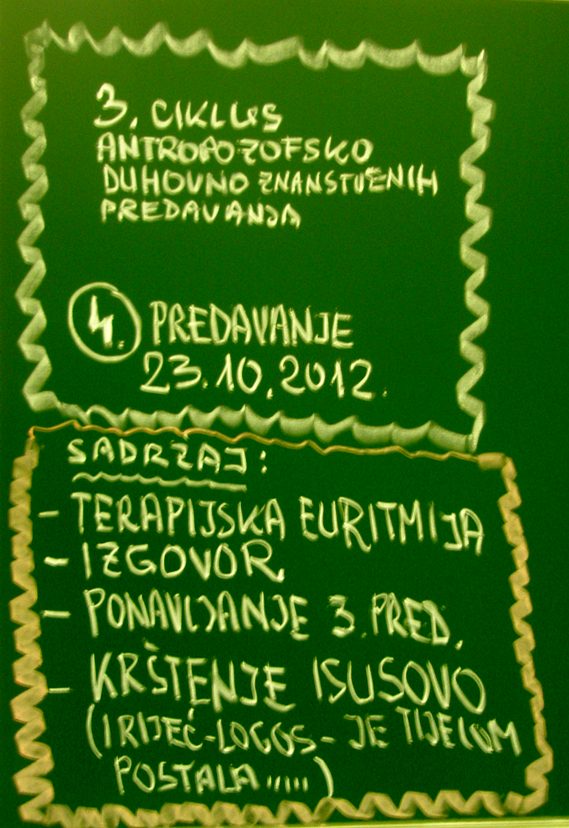 3. CIKLUS
ANTROPOZOFSKO
DUHOVNO ZNANSTVENIH
PREDAVANJA
4. PREDAVANJE
23.10.2012.
SADRŽAJ:
- TERAPIJSKA EURITMIJA
- IZGOVOR
- PONAVLJANJE 3. PRED.
- KRŠTENJE ISUSOVO
(I RIJEČ-LOGOS-JE TIJELOM
POSTALA.....)